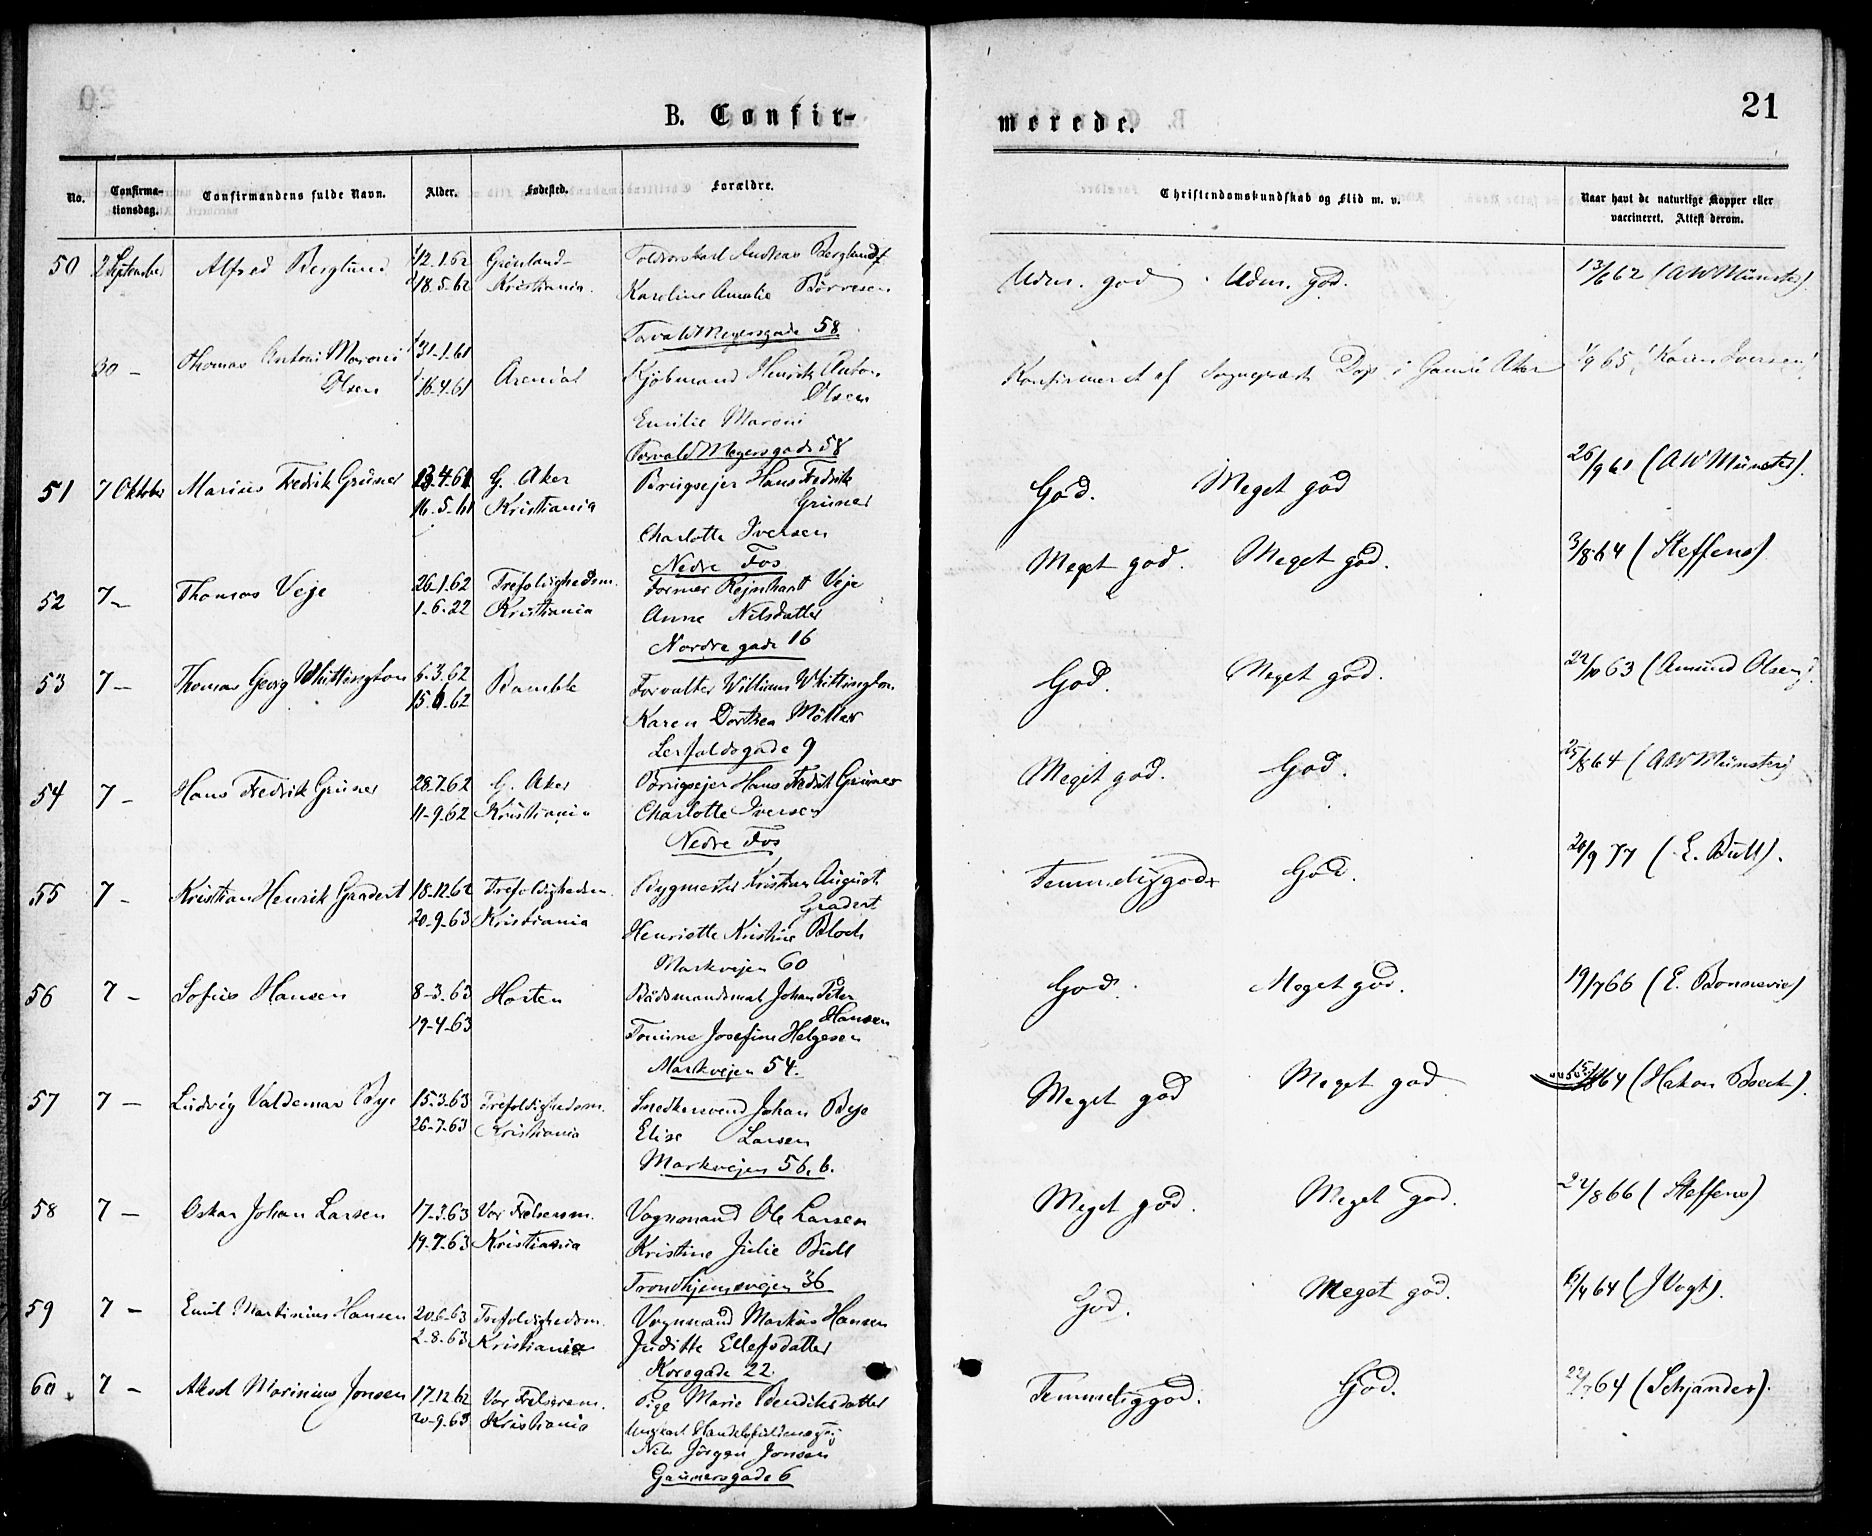 B. Confir-
merede.
21
No.
Confirma-
tionsdag.
Confirmandens fulde Navn.
Alder.
Fødested.
Forældre.
Christendomskundskab og Flid m. v.
Naar havt de naturlige Kopper eller
vaccineret. Attest derom.
50 2 September Alfred Berglund 12.1.62 Grønland Andreas Berglund Udm. god Udm. god. 13/6 62 (AWMünster).
18.5.62 Kristiania. Karoline Amalie Børresen
Torvald Meyersgade 58
30 – Thomas Antoni Maroni 31-1-61 Arendal Kjøbmand Henrik Anton Konfirmeret af Sognepræst i Gamle Aker 65, (Karen Iversen)
Olsen 16-4-61 Olsen
Emilie Maroni
Torvald Meyersgade 58
51 7 Oktober Marius Fredrik Grüner 13-4-61 G. Aker Brugsejer Hans Fredrik God. Meget god 26/9 61 (AWMünster).
16-5-61 Kristiania Grüner
Charlotte Iversen
Nedre Fos
52 7 – Thomas Veje 26-1-62 Trefoldighedsm. Former Rejnhart Veje Meget god. Meget god. 3/8 64 (Steffens)
1-6-22 Kristiania Anne Nilsdatter
Nordregade 16
53 7 – Thomas Georg Whittington 6-3-62 Bamble Forvalter William Whittington God. Meget god. 63 (Amund Olsen).
15.6.62 Karen Dorthea Møller
Lerfaldsgade 9
54 7 – Hans Fredrik Grüner 28.7.62 G. Aker Brugsejer Hans Fredrik Grüner Meget god. God. 25/8 64 (AWMünster)
11-9.62 Kristiania Charlotte Iversen
Nedre Fos
55 7 – Kristian Henrik Gradert 18-12.62 Trefoldighedsm. Bygmester Kristian August Temmelig god God. 20/9 77 (E. Bull).
20-9-63 Kristiania Gradert
Henriette Kristine Bloch
Markvejen 60
56 7 – Sofus Hansen 8-3.63 Horten Baadsmandsmat Johan Peter God. Meget god. 19/7 66 (E. Bonnevie)
19-4-63 Hansen
Josefine Helgesen
Markvejen 54.
57 7 – Ludvig Valdemar Bye 15-3.63 Trefoldighedsm. Snedkersvend Johan Bye Meget god Meget god 64 (Hakon Boeck).
26-7-63 Kristiania Elise Larsen
Markvejen 56. b.
58 7 – Oskar Johan Larsen 17-3.63 Vor Frelsersm. Vognmand Ole Larsen Meget god. Meget god. 22/8 66 (Steffens)
19-7-63 Kristiania Kristine Julie Bull
Trondhjemsvejen 36
59 7 – Emil Martinius Hansen 20.6-63 Trefoldighedsm. Vognmand Markus Hansen God. Meget god. 6/4 64 (J Vogt).
2-8-63 Kristiania Juditte Ellefsdatter
Korsgade 22
60 7 – Aksel Marinius Jonsen 17.12.62 Vor Frelsersm. Pige Marie Bendiksdatter Temmelig god. God. 64 (Schjander).
20-9.63 Kristiania Ungkarl
Nils Jörgen Jonsen
Gaunersgade 6